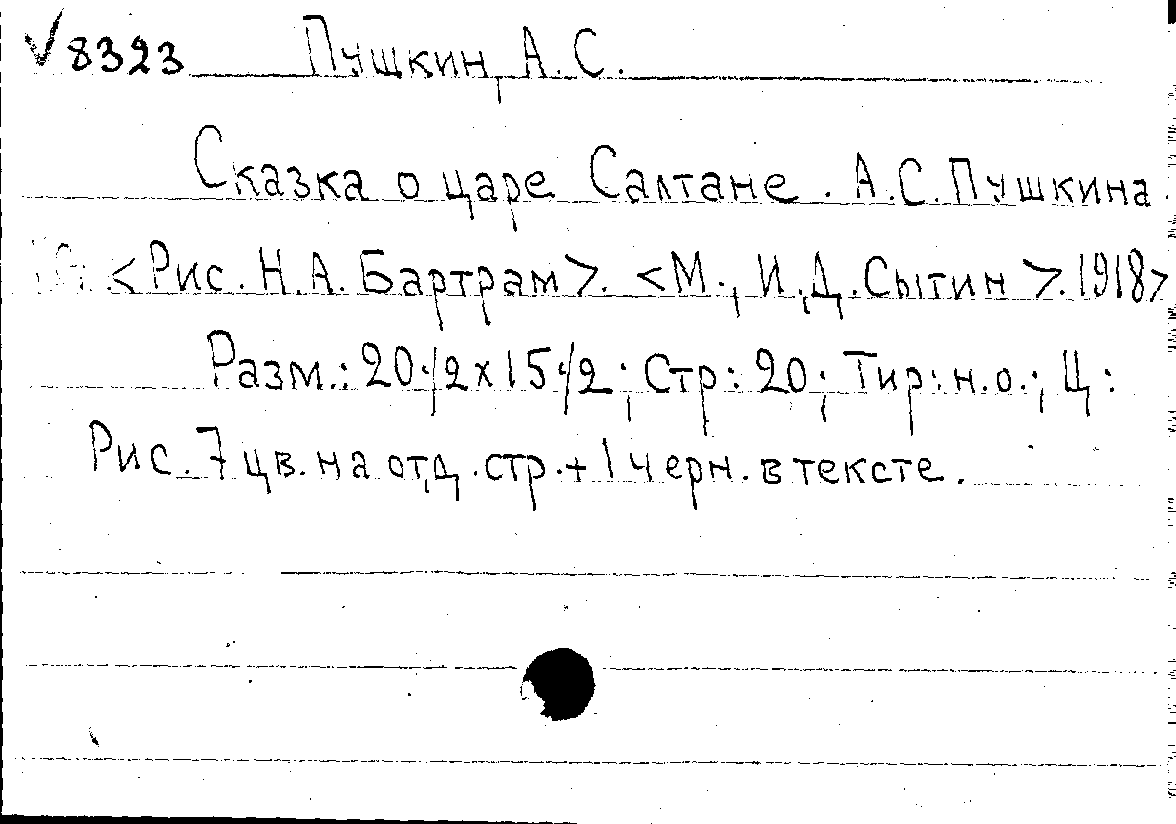 √8323 Пушкин, А.С.
Сказка о царе Салтане. А.С.Пушкина.
<Рис. Н.А.Бартрам>. <М., И.Д.Сытин>. 1918>
Разм.: 20·/2х15·/2; Стр: 20; Тир: н.о.; Ц:
Рис. 7 цв. на отд. стр. + 1 черн. в тексте.